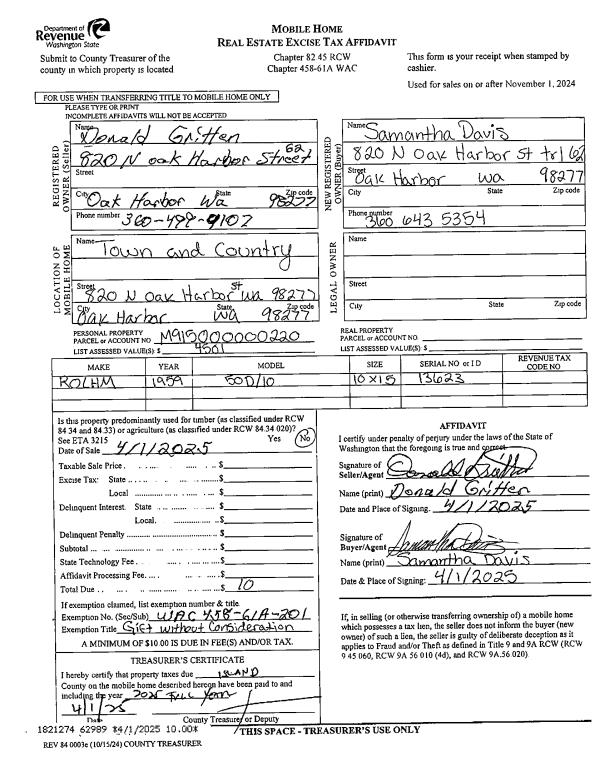 Department of
Revenue
Washington State
MOBILE HOME
REAL ESTATE EXCISE TAX AFFIDAVIT
Submit to County Treasurer of the
county in which property is located
Chapter 82 45 RCW
Chapter 458-61A WAC
This form is your receipt when stamped by
cashier.
Used for sales on or after November 1, 2024
FOR USE WHEN TRANSFERRING TITLE TO MOBILE HOME ONLY
PLEASE TYPE OR PRINT
INCOMPLETE AFFIDAVITS WILL NOT BE ACCEPTED
REGISTERED
OWNER (Seller)
Name
Donald Gritten
62
820 N oak Harbor Street
Street
City State Zip code
Oak Harbor Wa 98277
Phone number 360-499-9107
NEW REGISTERED
OWNER (Buyer)
Name Samantha Davis
820 N Oak Harbor St trl 62
Street Oak Harbor wa 98277
City State Zip code
Phone number
360 643 5354
LOCATION OF
MOBILE HOME
Name
Town and Country
Street St
820 N Oak Harbor wa 98277
City State Zip code
Oak Harbor WA 98277
LEGAL OWNER
Name
Street
City State Zip code
PERSONAL PROPERTY
PARCEL or ACCOUNT NO M915000000220
LIST ASSESSED VALUE(S) $ 4501
REAL PROPERTY
PARCEL or ACCOUNT NO.
LIST ASSESSED VALUE(S) $
MAKE YEAR MODEL SIZE SERIAL NO or ID REVENUE TAX CODE NO
ROLHM 1959 50D/10 10x15 13623
Is this property predominantly used for timber (as classified under RCW
84 34 and 84.33) or agriculture (as classified under RCW 84.34 020)?
See ETA 3215 Yes No
Date of Sale 4/1/2025
Taxable Sale Price $
Excise Tax: State $
Local $
Delinquent Interest. State $
Local. $
Delinquent Penalty $
Subtotal $
State Technology Fee $
Affidavit Processing Fee. $
Total Due $ 10
If exemption claimed, list exemption number & title.
Exemption No. (Sec/Sub) WAC 458-61A-201
Exemption Title Gift without Consideration
A MINIMUM OF $10.00 IS DUE IN FEE(S) AND/OR TAX.
TREASURER'S CERTIFICATE
I hereby certify that property taxes due ISLAND
County on the mobile home described hereon have been paid to and
including the year 2025 Full Year
4/1/25
Date County Treasurer or Deputy
AFFIDAVIT
I certify under penalty of perjury under the laws of the State of
Washington that the foregoing is true and correct
Signature of
Seller/Agent Donald Gritten
Name (print) Donald Gritten
Date and Place of Signing: 4/1/2025
Signature of
Buyer/Agent Samantha Davis
Name (print) Samantha Davis
Date & Place of Signing: 4/1/2025
If, in selling (or otherwise transferring ownership of) a mobile home
which possesses a tax lien, the seller does not inform the buyer (new
owner) of such a lien, the seller is guilty of deliberate deception as it
applies to Fraud and/or Theft as defined in Title 9 and 9A RCW (RCW
9 45 060, RCW 9A 56 010 (4d), and RCW 9A.56 020).
1821274 62989 *4/1/2025 10.00*
THIS SPACE - TREASURER'S USE ONLY
REV 84 0003e (10/15/24) COUNTY TREASURER